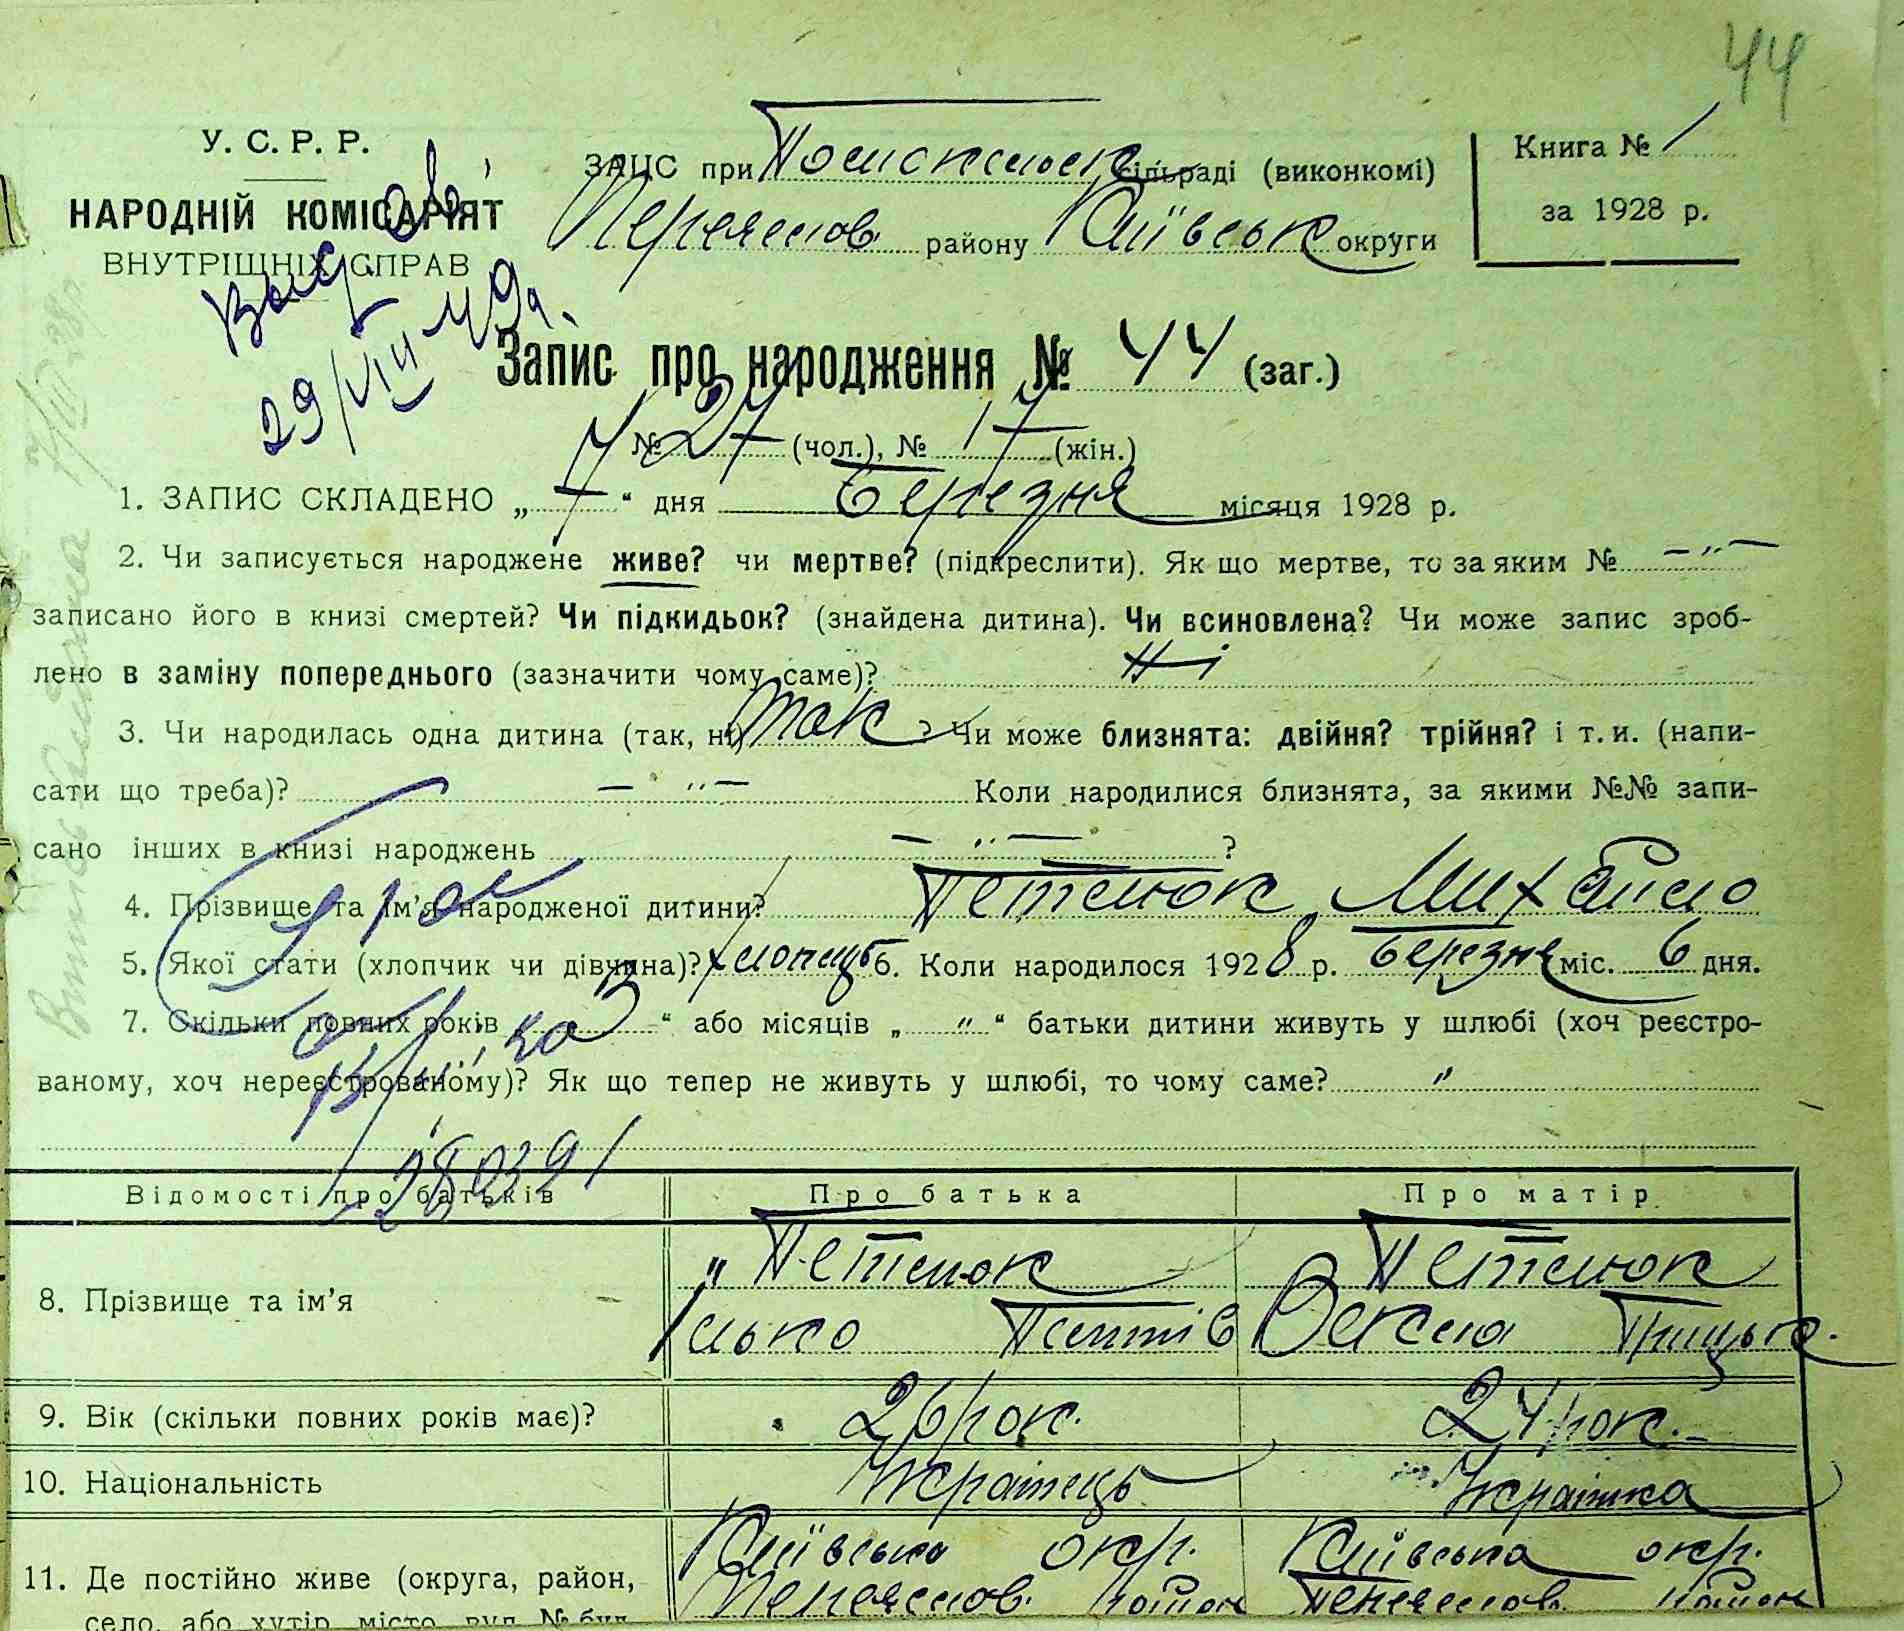 44
У. С. Р. Р.
НАРОДНІЙ КОМІСАРІЯТ
ВНУТРІШНІХ СПРАВ
ЗАЦС при сільраді (виконкомі)
Переяслов. району Київськ округи
Книга № 1
за 1928 р.
29/VIII 49
Запис про народження № 44 (заг.)
№ 27 (чол.), № 17 (жін.)
1. ЗАПИС СКЛАДЕНО „ 7 “ дня Березня місяця 1928 р.
2. Чи записується народжене живе? чи мертве? (підкреслити). Як що мертве, то за яким № — „ —
записано його в книзі смертей? Чи підкидьок? (знайдена дитина). Чи всиновлена? Чи може запис зроб-
лено в заміну попереднього (зазначити чому саме)? Ні
3. Чи народилась одна дитина (так, ні) так ? Чи може близнята: двійня? трійня? і т. и. (напи-
сати що треба)? — „ — Коли народилися близнята, за якими №№ запи-
сано інших в книзі народжень — „ — ?
4. Прізвище та ім'я народженої дитини? Петлюк Михайло
5. Якої стати (хлопчик чи дівчина)? хлопець 6. Коли народилося 1928 р. березня міс. 6 дня.
7. Скільки повних років „ 3 “ або місяців „ „ “ батьки дитини живуть у шлюбі (хоч реєстро-
ваному, хоч нереєстрованому)? Як що тепер не живуть у шлюбі, то чому саме? „
Відомості про батьків Про батька Про матір
8. Прізвище та ім'я Петлюк Петлюк
Ісько Оксна Грицьк.
9. Вік (скільки повних років має)? 26 рок. 24 рок.
10. Національність Українець Українка
11. Де постійно живе (округа, район, Київська окр. Київська окр.
село, або хутір, місто, вул. № буд. Переяслов. район Переяслов. район